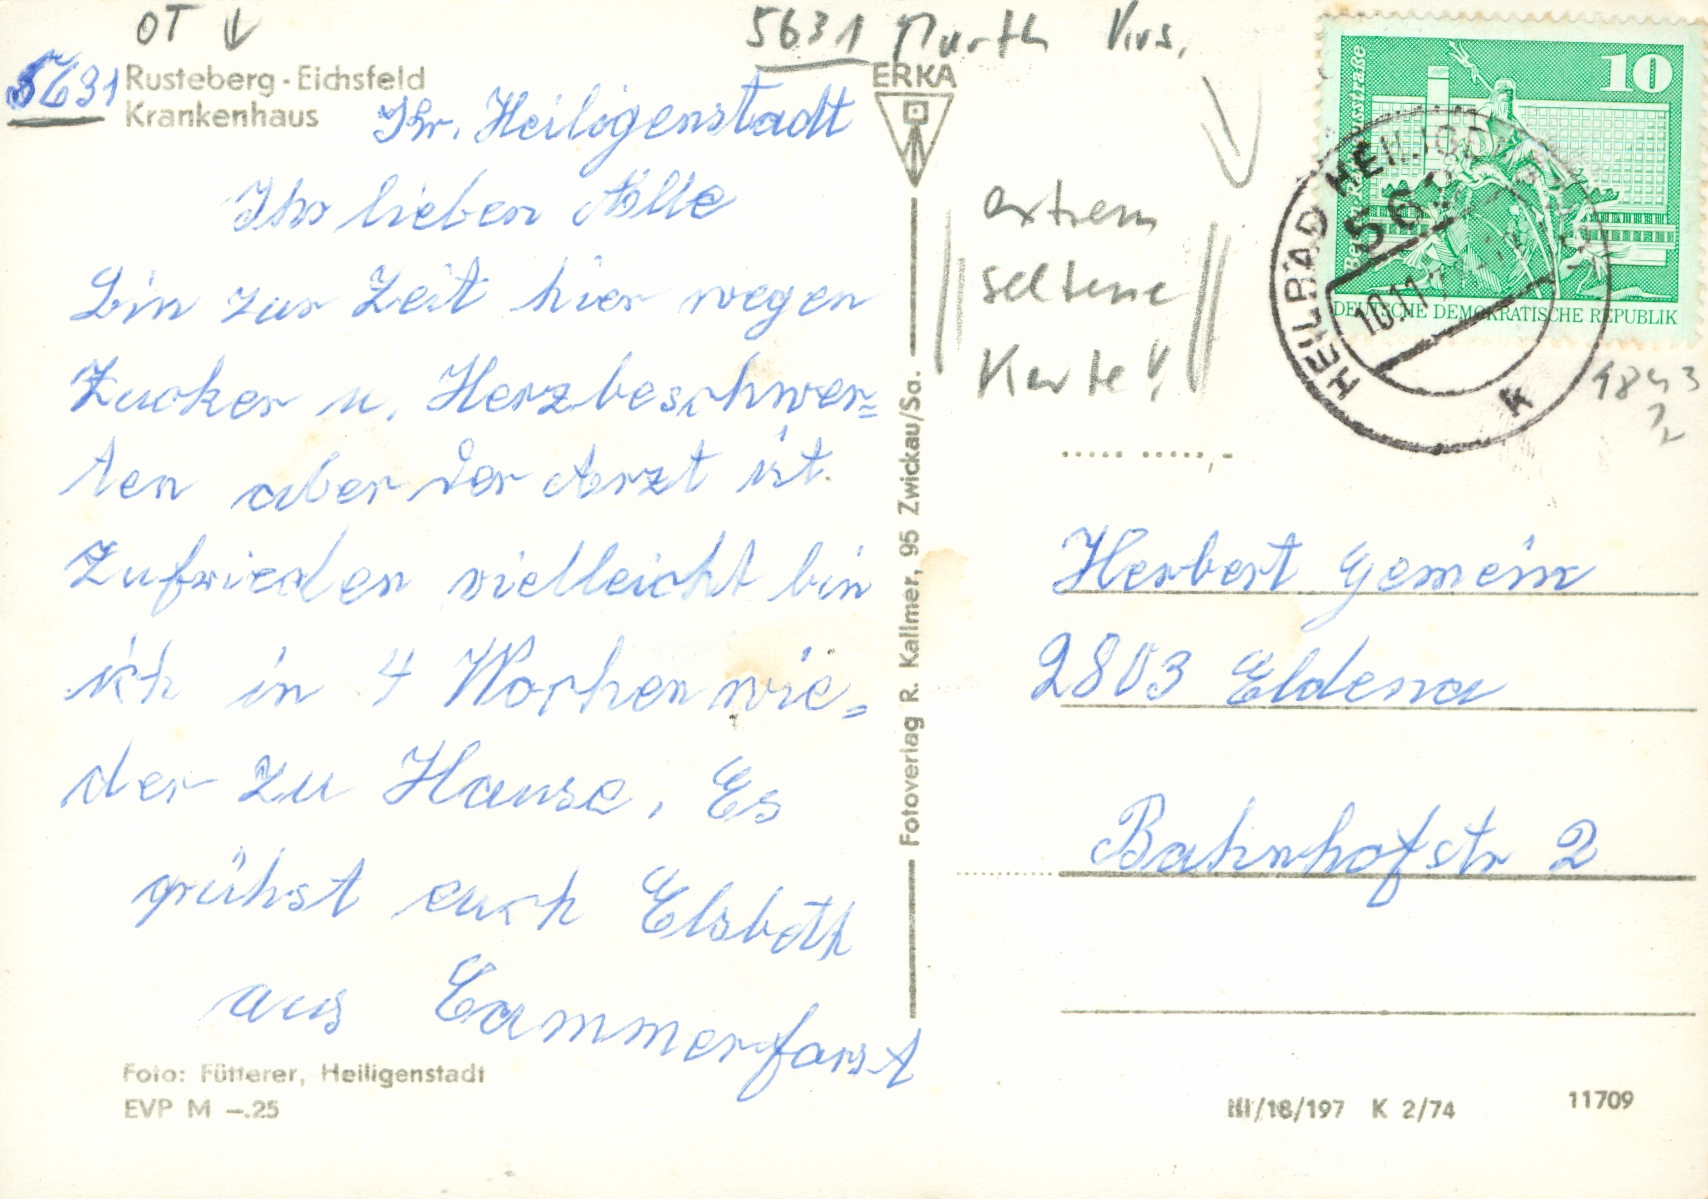 OT
5631 Marth Krs.
5631 Rusteberg · Eichsfeld
Krankenhaus Kr. Heiligenstadt
Ihr lieben Alle
bin zur Zeit hier wegen
Zucker u. Herzbeschwer=
ten aber der Arzt ist
Zufrieden vielleicht bin
ich in 4 Wochen wie=
der zu Hause. Es
grühst euch Elsbeth
aus Cammerforst
Foto: Fütterer, Heiligenstadt
EVP M –.25
ERKA
Fotoverlag R. Kallmer, 95 Zwickau/Sa.
extrem
seltene
Karte!
10
DEUTSCHE DEMOKRATISCHE REPUBLIK
HEILBAD HEILIGENSTADT
k
Herbert Gemein
2803 Eldena
Bahnhofstr 2
III/18/197 K 2/74
11709